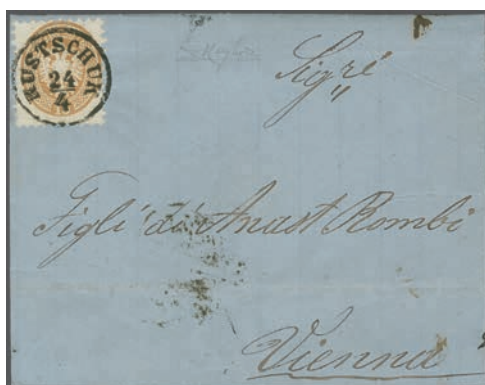 RUSTSCHUK
24
4
Sigri
"
Figli di Anast Rombi
Vienna